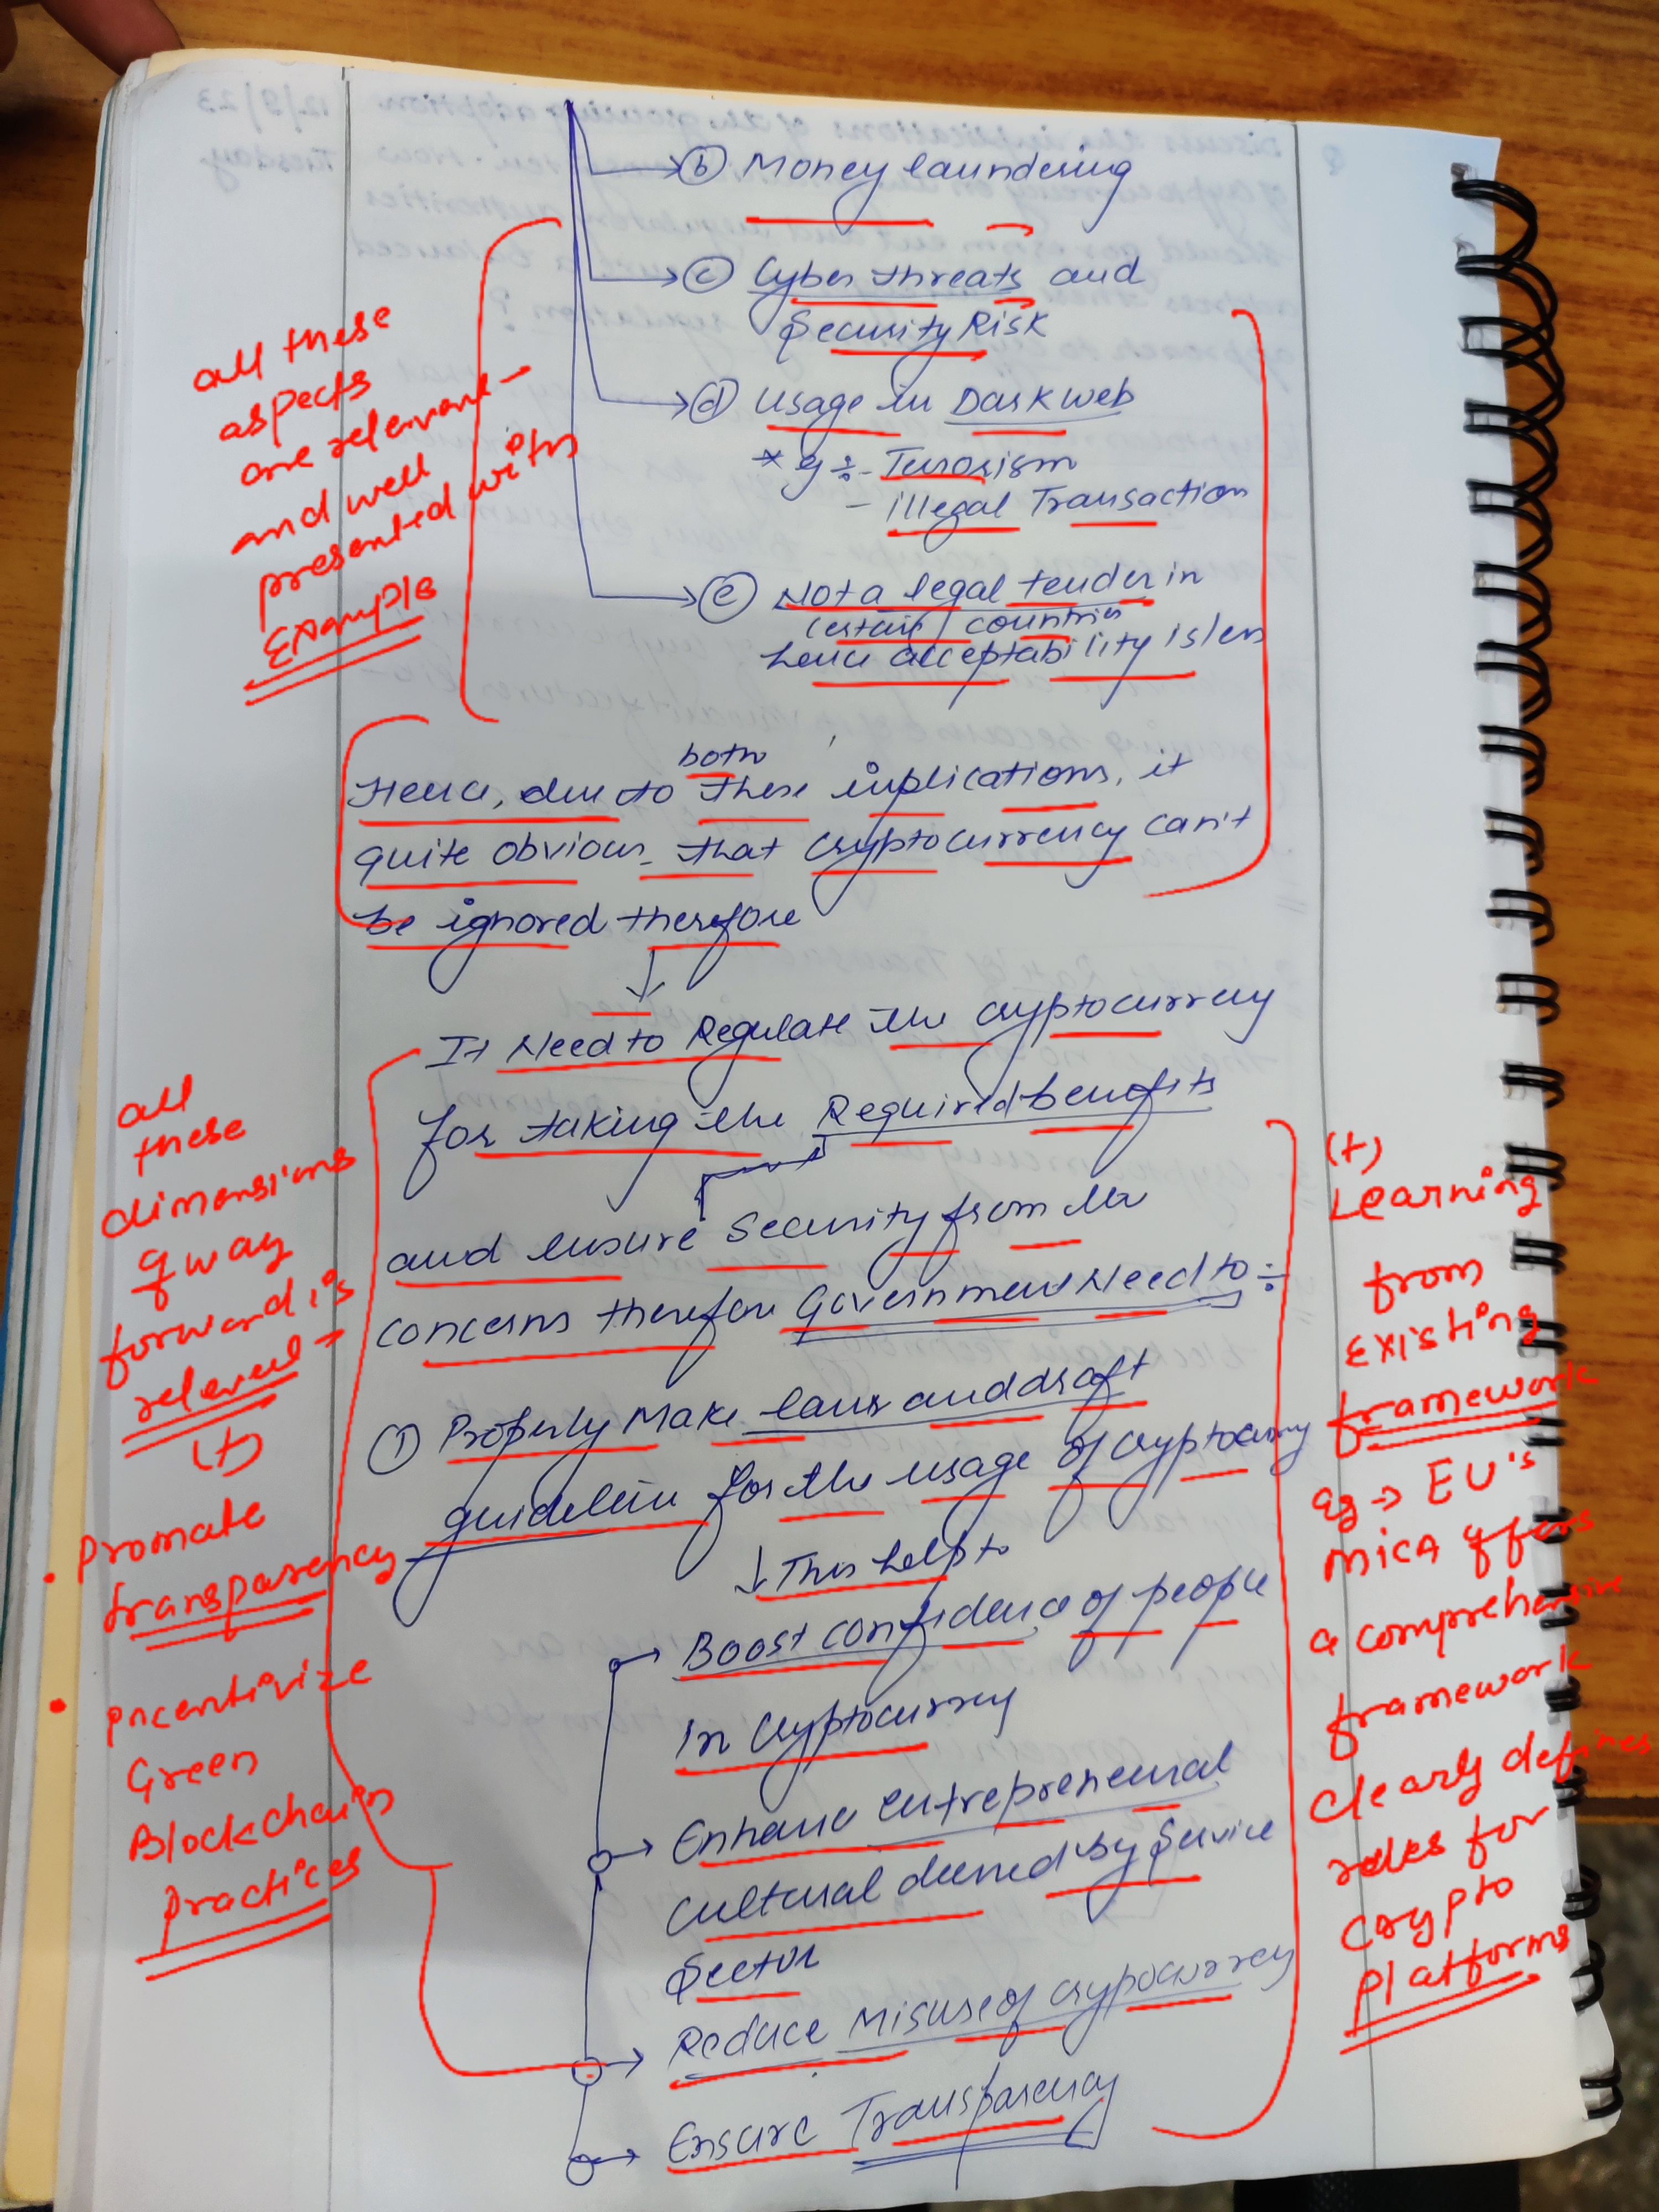 (b) Money laundering
(c) Cyber threats and
Security Risk
(d) Usage in Dark web
* eg ÷ - Terrorism
- illegal Transaction
(e) Not a legal tender in
certain countries
hence acceptability is less
all these
aspects
are relevant
and well
presented with
Example
both
Hence, due to these implications, it
quite obvious that Cryptocurrency can't
be ignored therefore
It Need to Regulate the cryptocurrency
for taking the Required benefits
and ensure Security from the
concerns therefore Government Need to ÷
(1) Properly Make laws and draft
guideline for the usage of Cryptocurrency
↓ This help to
→ Boost confidence of people
In Cryptocurrency
→ Enhance entrepreneurial
Cultural deemed by Service
Sector
→ Reduce Misuse of cryptocurrency
→ Ensure Transparency
all
these
dimensions
of way
forward is
relevant
(+)
• Promote
transparency
• incentivize
Green
Blockchain
practices
(+)
Learning
from
Existing
framework
Eg → EU's
MiCA offers
a comprehensive
framework
clearly defines
rules for
crypto
platforms
12/9/23
Tuesday